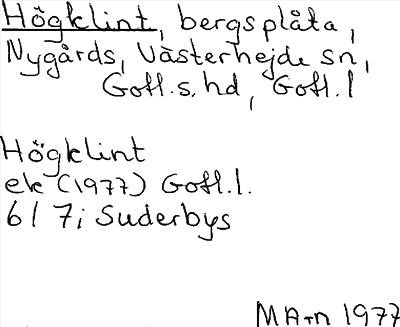 Högklint, bergsplåta,
Nygårds, Västerhejde sn,
Gotl.s.hd, Gotl.l
Högklint
ek (1977) Gotl.l.
6I 7i Suderbys
MArn 1977